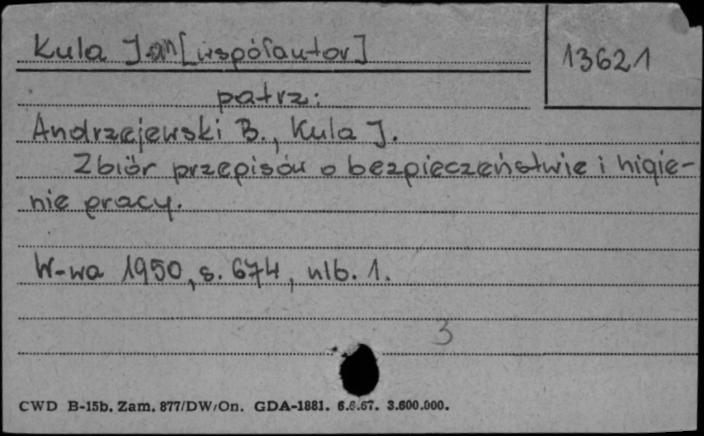 Kula Jan [współautor]
13621
patrz:
Andrzejewski B., Kula J.
Zbiór przepisów o bezpieczeństwie i higie-
nie pracy.
W-wa 1950, s. 674, nlb. 1.
3
CWD B-15b. Zam. 877/DW/On. GDA-1881. 6.6.67. 3.600.000.